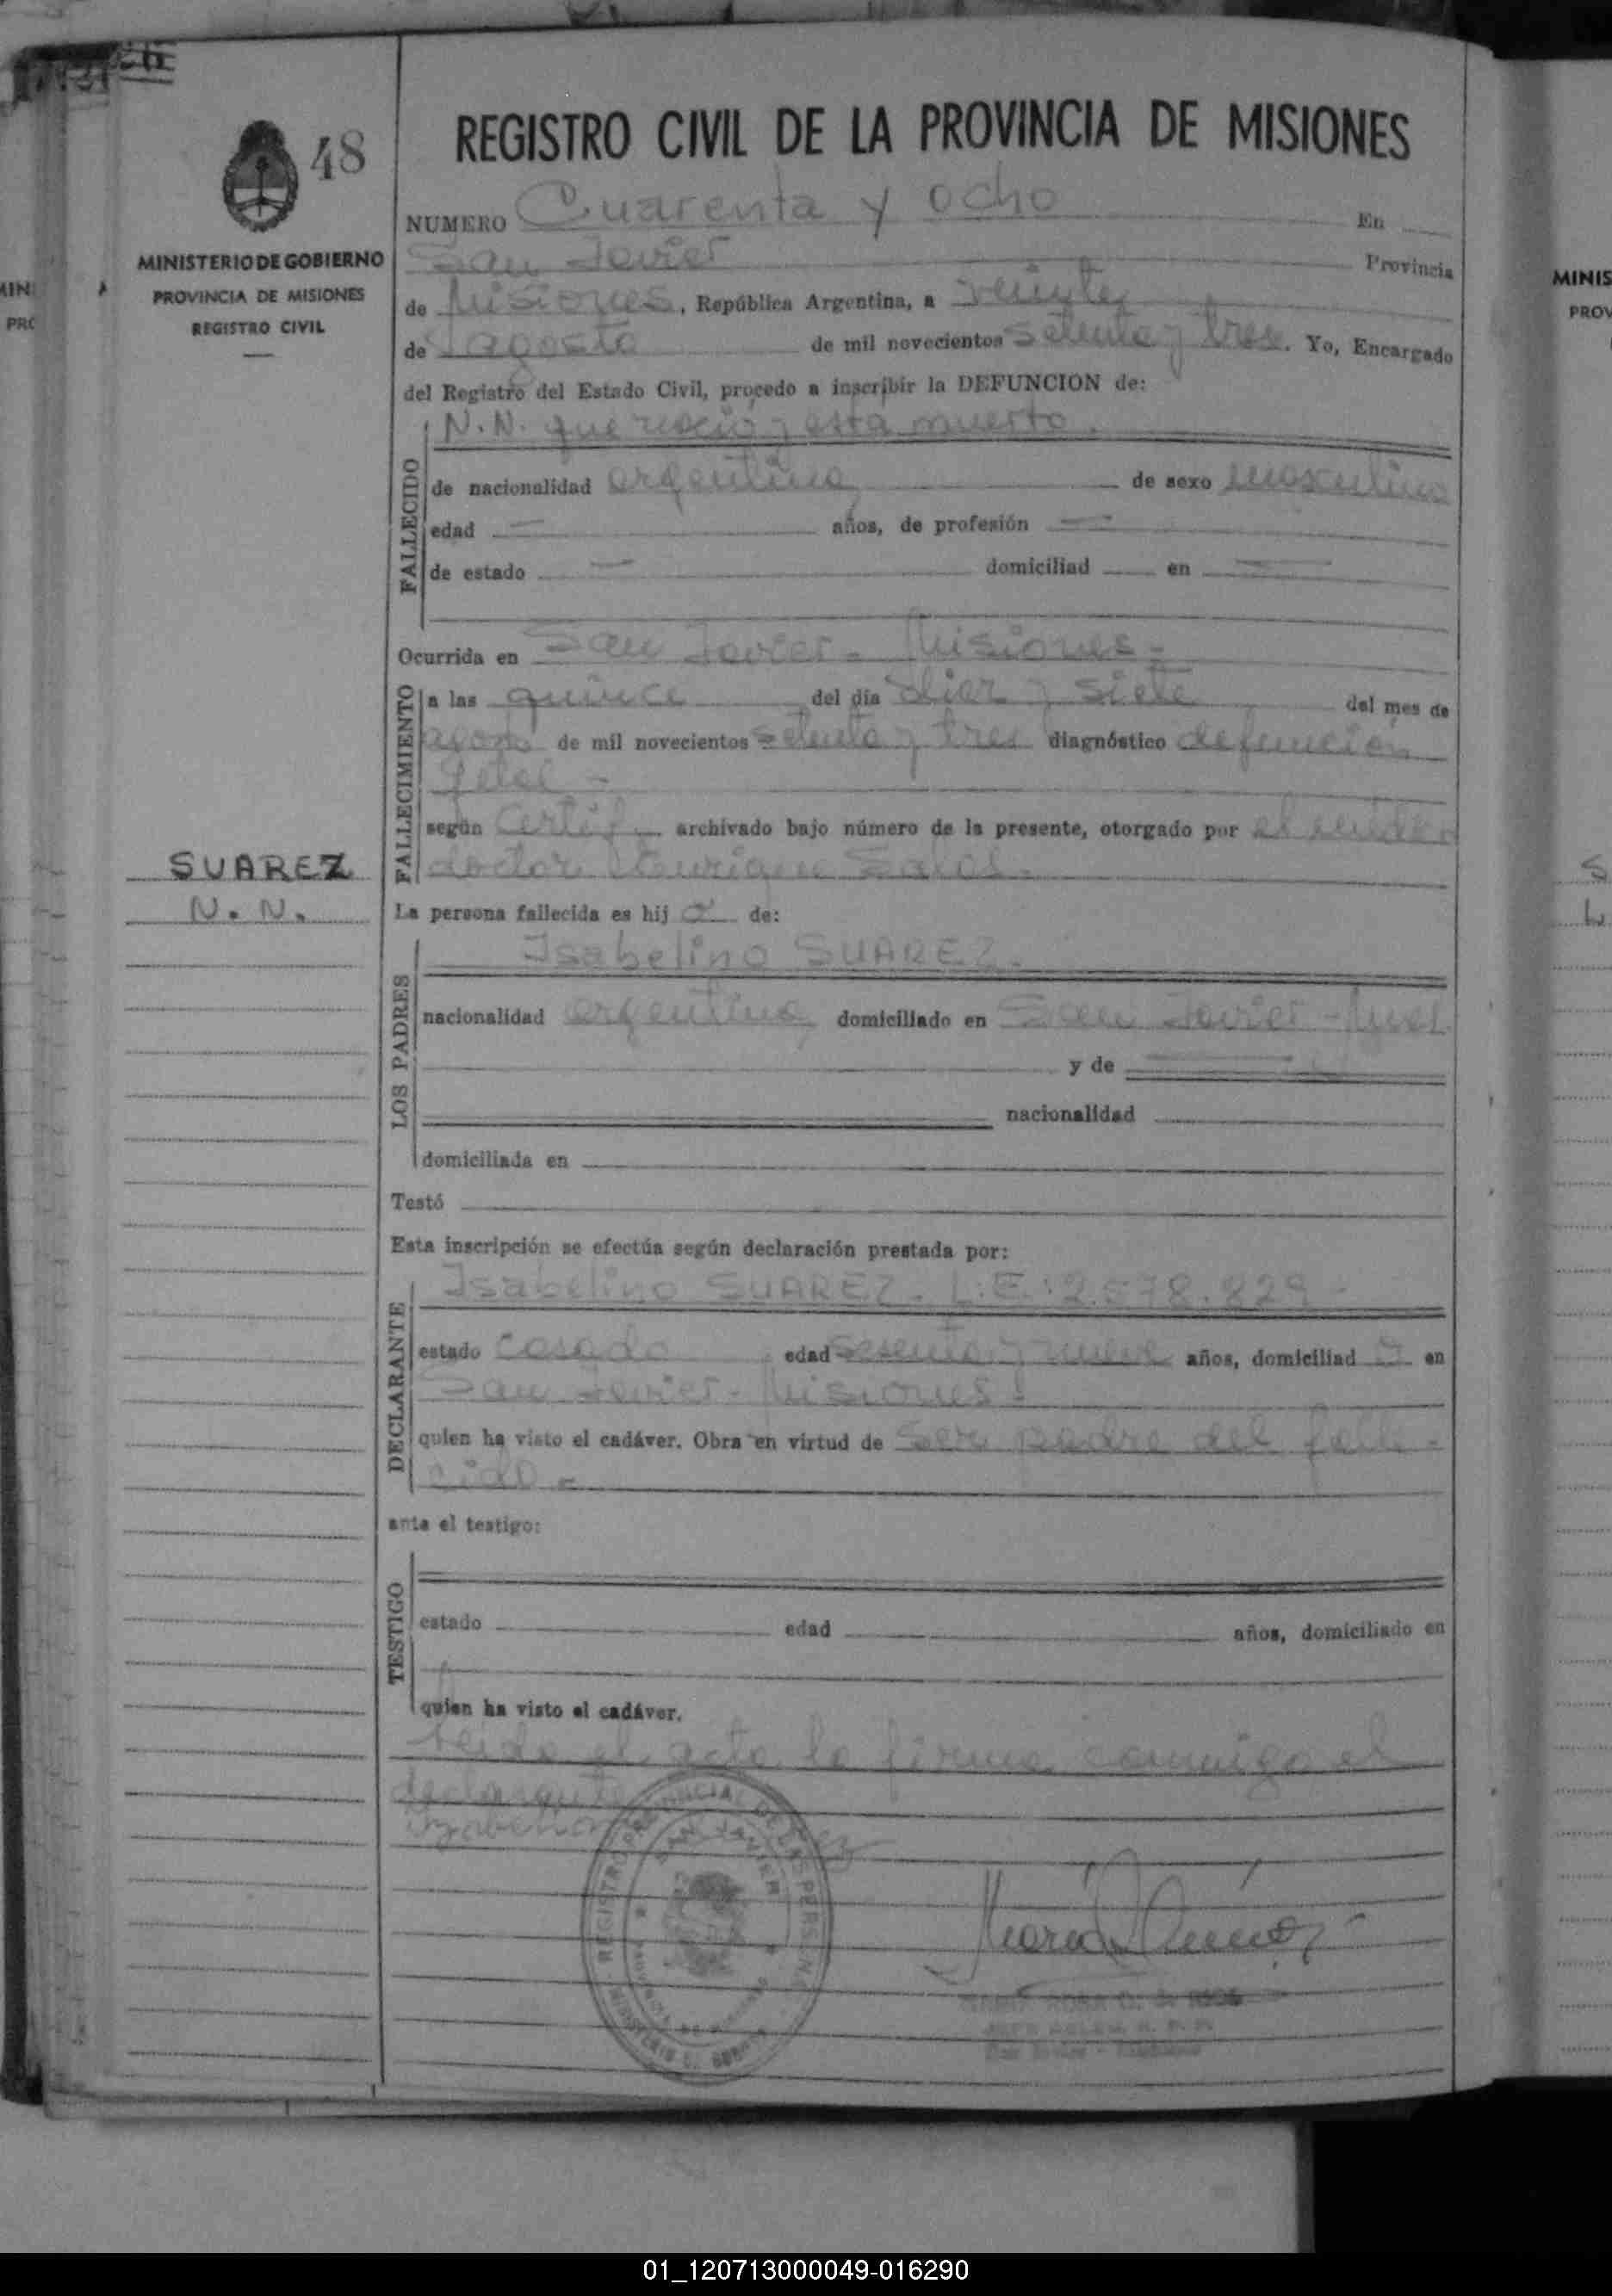 48
MINISTERIO DE GOBIERNO
PROVINCIA DE MISIONES
REGISTRO CIVIL
SUAREZ
N. N.
REGISTRO CIVIL DE LA PROVINCIA DE MISIONES
NUMERO Cuarenta y ocho En
San Javier Provincia
de Misiones, República Argentina, a veinte
de agosto de mil novecientos setenta y tres. Yo, Encargado
del Registro del Estado Civil, procedo a inscribir la DEFUNCION de:
N.N. que nació y está muerto.
FALLECIDO
de nacionalidad argentina de sexo masculino
edad — años, de profesión —
de estado — domiciliad en —
Ocurrida en San Javier - Misiones -
FALLECIMIENTO
a las quince del día diez y siete del mes de
agosto de mil novecientos setenta y tres diagnóstico defunción
fetal -
según Certif. archivado bajo número de la presente, otorgado por el
doctor Enrique
La persona fallecida es hij o de:
LOS PADRES
Isabelino SUAREZ.
nacionalidad argentina domiciliado en San Javier -
y de
nacionalidad
domiciliada en
Testó
Esta inscripción se efectúa según declaración prestada por:
DECLARANTE
Isabelino SUAREZ. L.E.: 2.578.829 -
estado casado edad sesenta y nueve años, domiciliad o en
San Javier - Misiones -
quien ha visto el cadáver. Obra en virtud de ser padre del falle-
cido -
ante el testigo:
TESTIGO
estado edad años, domiciliado en
quien ha visto el cadáver.
Leída el acta la firma conmigo el
declarante
REGISTRO PROVINCIAL DE LAS PERSONAS
SAN JAVIER
01_120713000049-016290